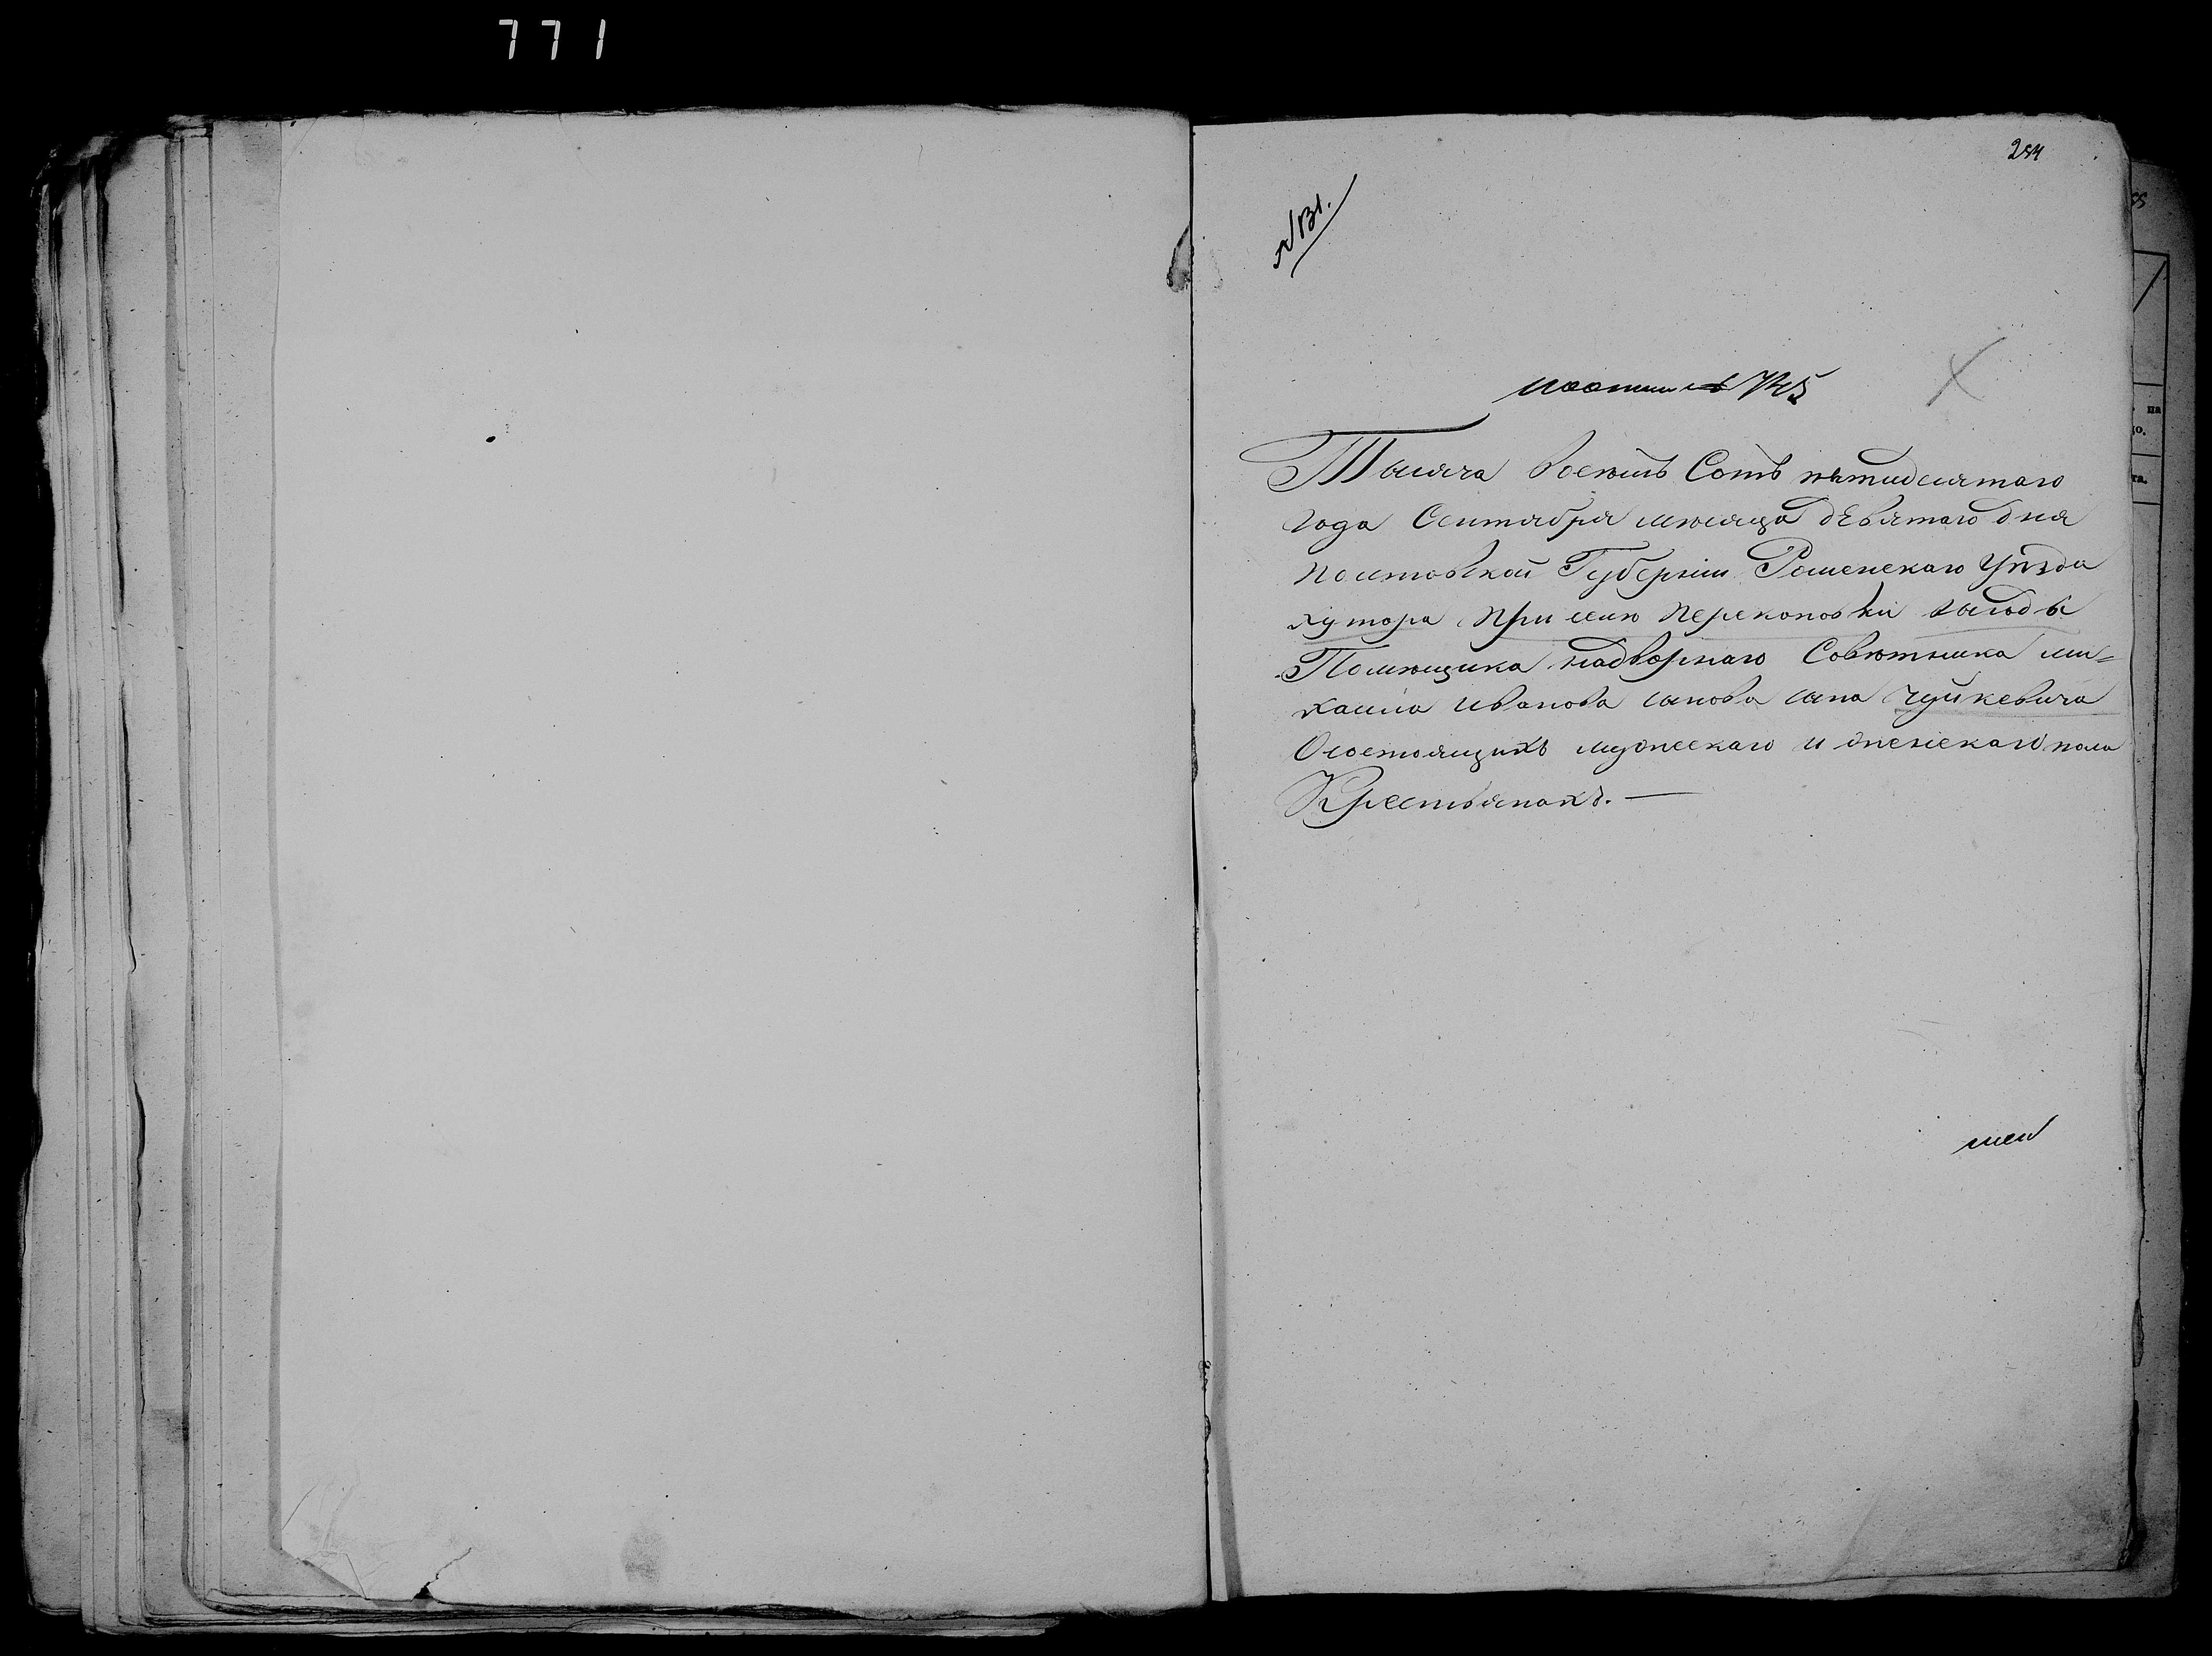 771
254
№ 131.
Тысяча восемь Сотъ пятидесятаго
года Сентября мѣсяца дЕвятаго дня
Полтовской Губерніи Роменскаго Уѣзда
хутора При селѣ Перекоповки
Помѣщика надворнаго Совѣтника ми=
хаила Иванова сынова сына Чуйкевича
О состоящихъ мужескаго и женскаго пола
Крестьянахъ. —